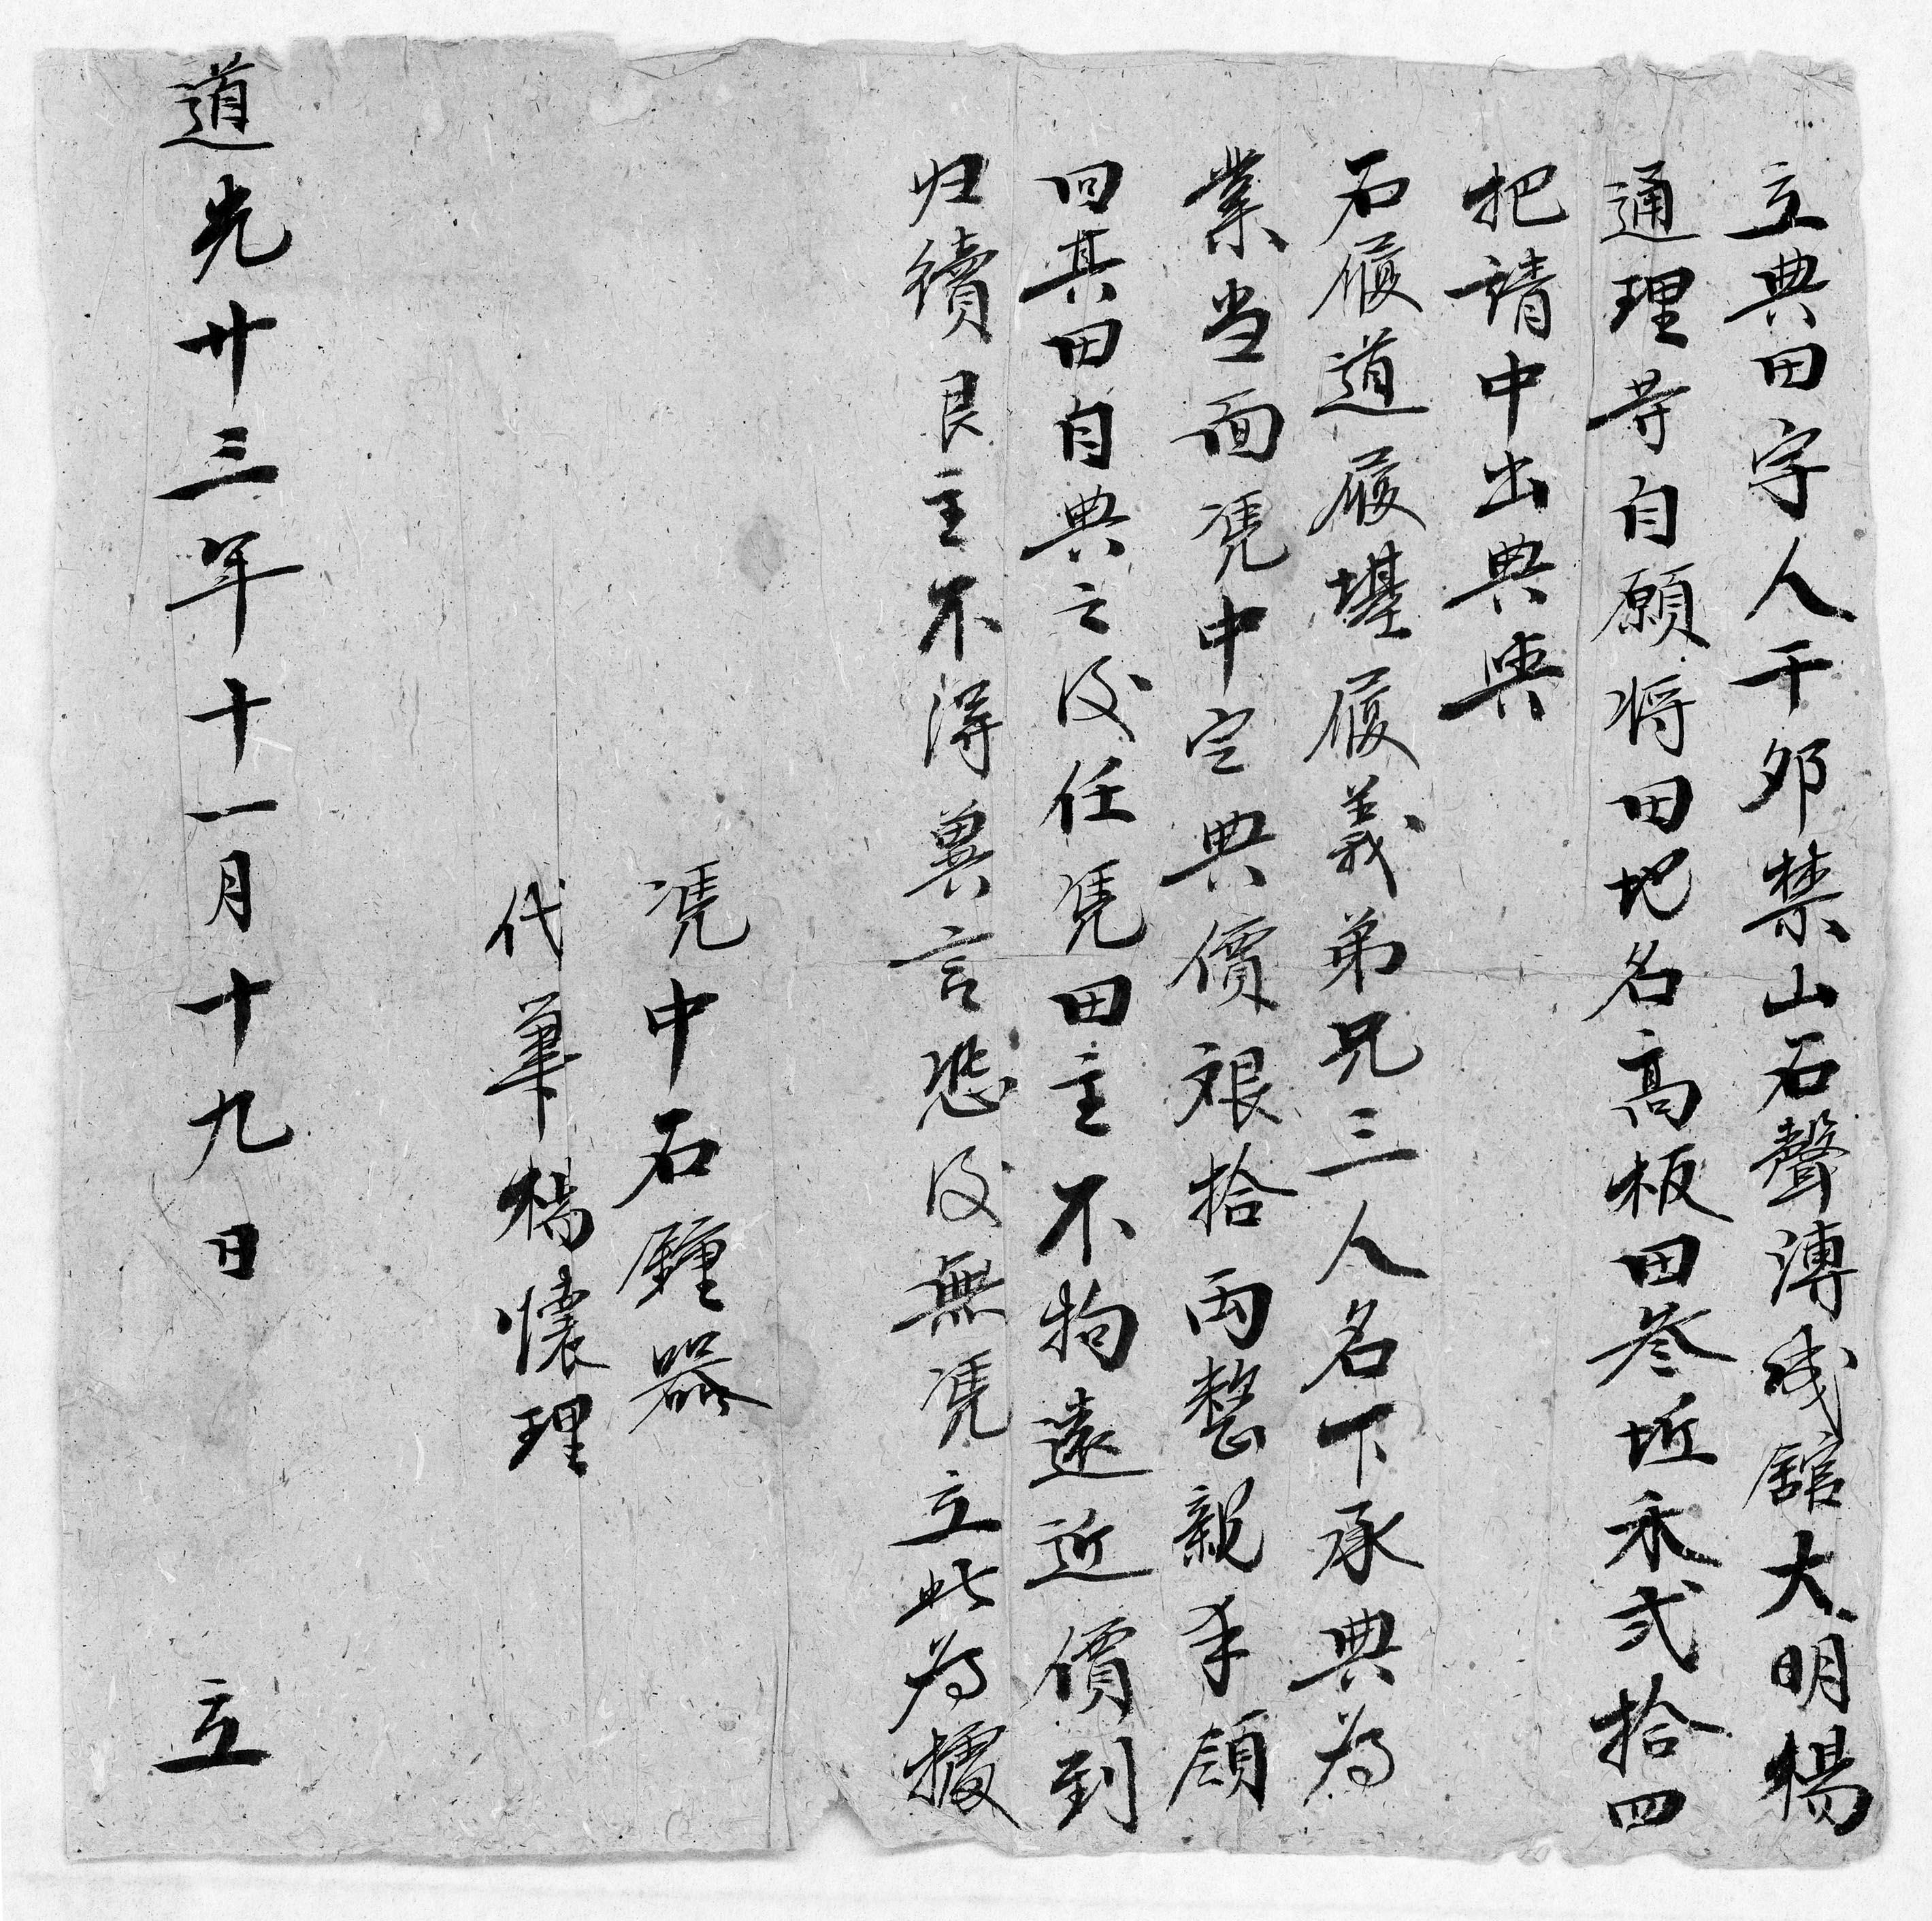 立典田字人干夘禁山石聲溥线舘大明楊
通理等自願将田地名高板田叄坵禾弍拾四
把請中出典與
石履道履堪履義弟兄三人名下承典为
業当面凴中定典價艰拾両整親手領
回其田自典之后任凴田主不拘遠近價到
归續艮主不淂異言恐后無凴立此为據
凴中石鍾器
代筆楊懷理
道光廿三年十一月十九日 立